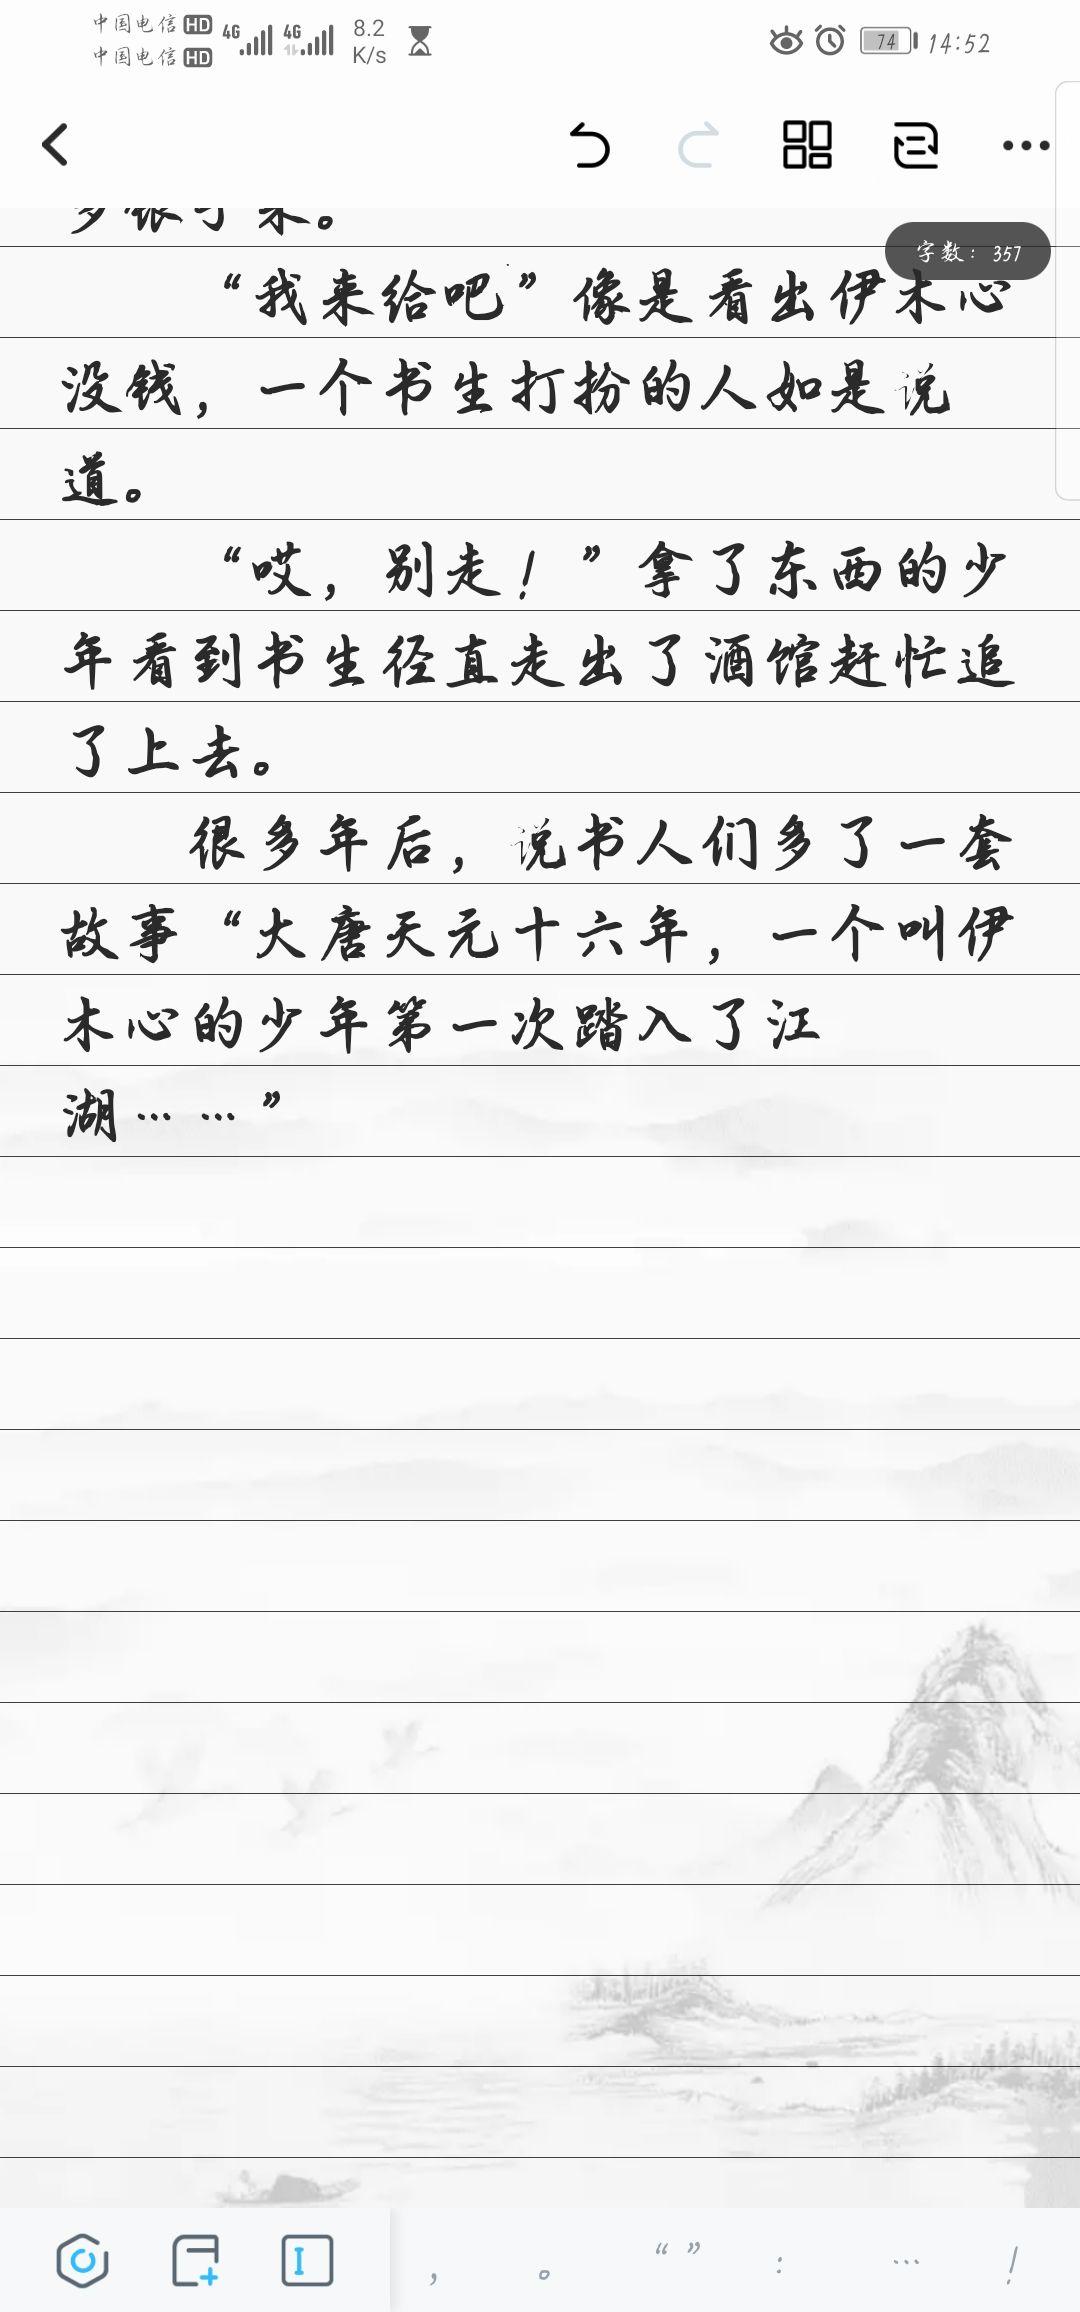 中国电信 HD 4G 4G 8.2 K/s 74 14:52
中国电信 HD
多银子来。
字数：357
“我来给吧”像是看出伊木心
没钱，一个书生打扮的人如是说
道。
“哎，别走！”拿了东西的少
年看到书生径直走出了酒馆赶忙追
了上去。
很多年后，说书人们多了一套
故事“大唐天元十六年，一个叫伊
木心的少年第一次踏入了江
湖……”
， 。 “” ： … ！